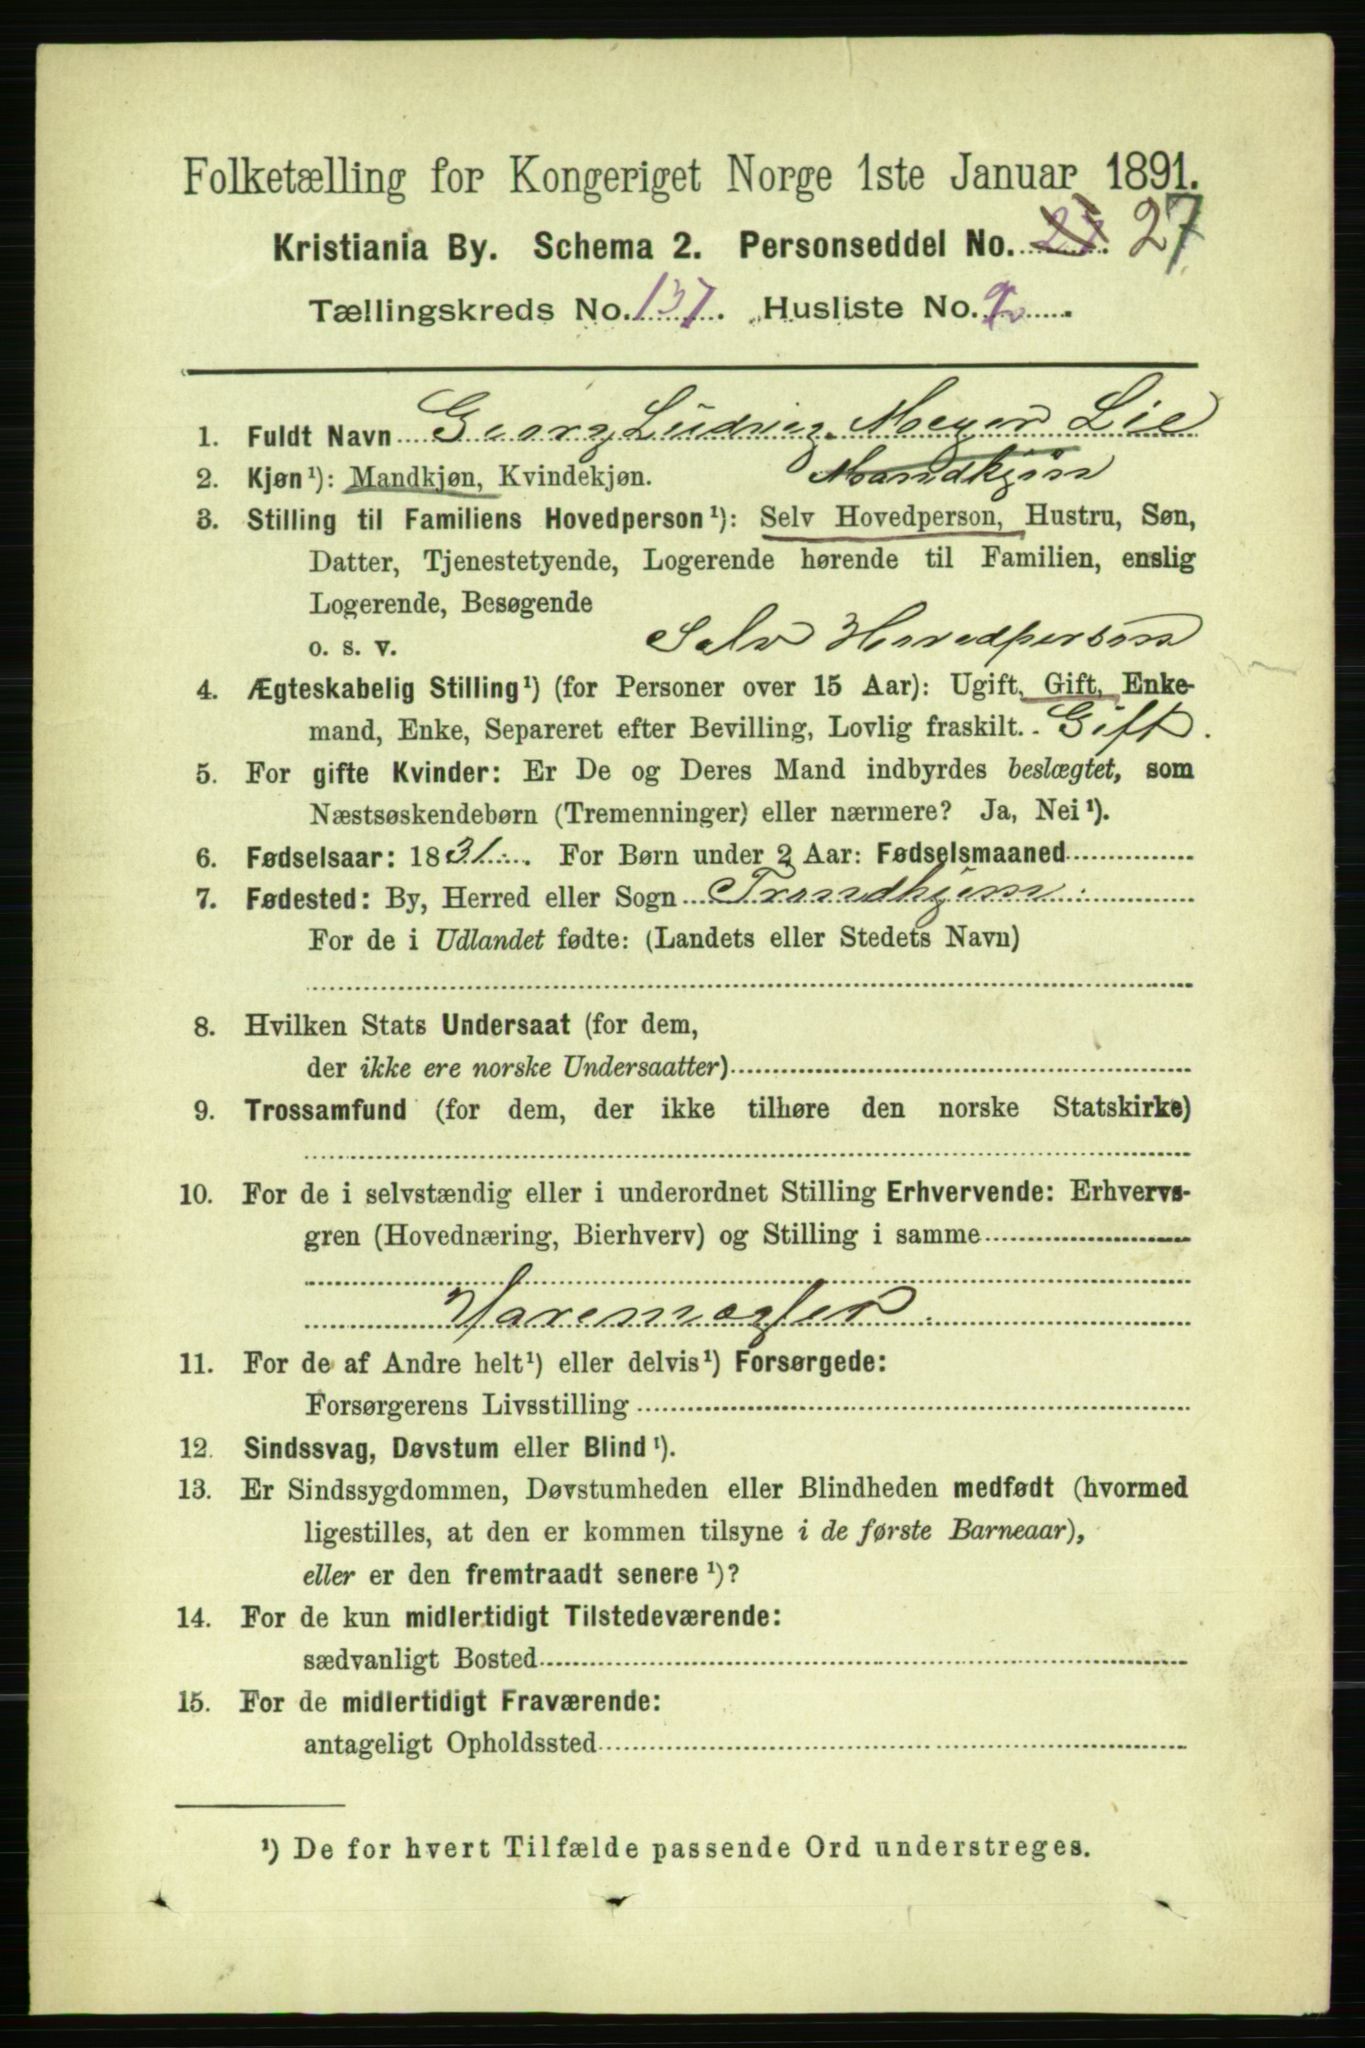 Folketælling for Kongeriget Norge 1ste Januar 1891.
Kristiania By. Schema 2. Personseddel No. 27
Tællingskreds No. 137. Husliste No. 9
1. Fuldt Navn Georg Ludvig Meyer Lie
2. Kjøn¹): Mandkjøn, Kvindekjøn. Mandkjøn
3. Stilling til Familiens Hovedperson¹): Selv Hovedperson, Hustru, Søn,
Datter, Tjenestetyende, Logerende hørende til Familien, enslig
Logerende, Besøgende
o. s. v. Selv Hovedperson
4. Ægteskabelig Stilling¹) (for Personer over 15 Aar): Ugift, Gift, Enke-
mand, Enke, Separeret efter Bevilling, Lovlig fraskilt. Gift.
5. For gifte Kvinder: Er De og Deres Mand indbyrdes beslægtet, som
Næstsøskendebørn (Tremenninger) eller nærmere? Ja, Nei¹).
6. Fødselsaar: 1831. For Børn under 2 Aar: Fødselsmaaned
7. Fødested: By, Herred eller Sogn Trondhjem
For de i Udlandet fødte: (Landets eller Stedets Navn)
8. Hvilken Stats Undersaat (for dem,
der ikke ere norske Undersaatter)
9. Trossamfund (for dem, der ikke tilhøre den norske Statskirke)
10. For de i selvstændig eller i underordnet Stilling Erhvervende: Erhvervs-
gren (Hovednæring, Bierhverv) og Stilling i samme
Varemægler
11. For de af Andre helt¹) eller delvis¹) Forsørgede:
Forsørgerens Livsstilling
12. Sindssvag, Døvstum eller Blind¹).
13. Er Sindssygdommen, Døvstumheden eller Blindheden medfødt (hvormed
ligestilles, at den er kommen tilsyne i de første Barneaar),
eller er den fremtraadt senere¹)?
14. For de kun midlertidigt Tilstedeværende:
sædvanligt Bosted
15. For de midlertidigt Fraværende:
antageligt Opholdssted
¹) De for hvert Tilfælde passende Ord understreges.